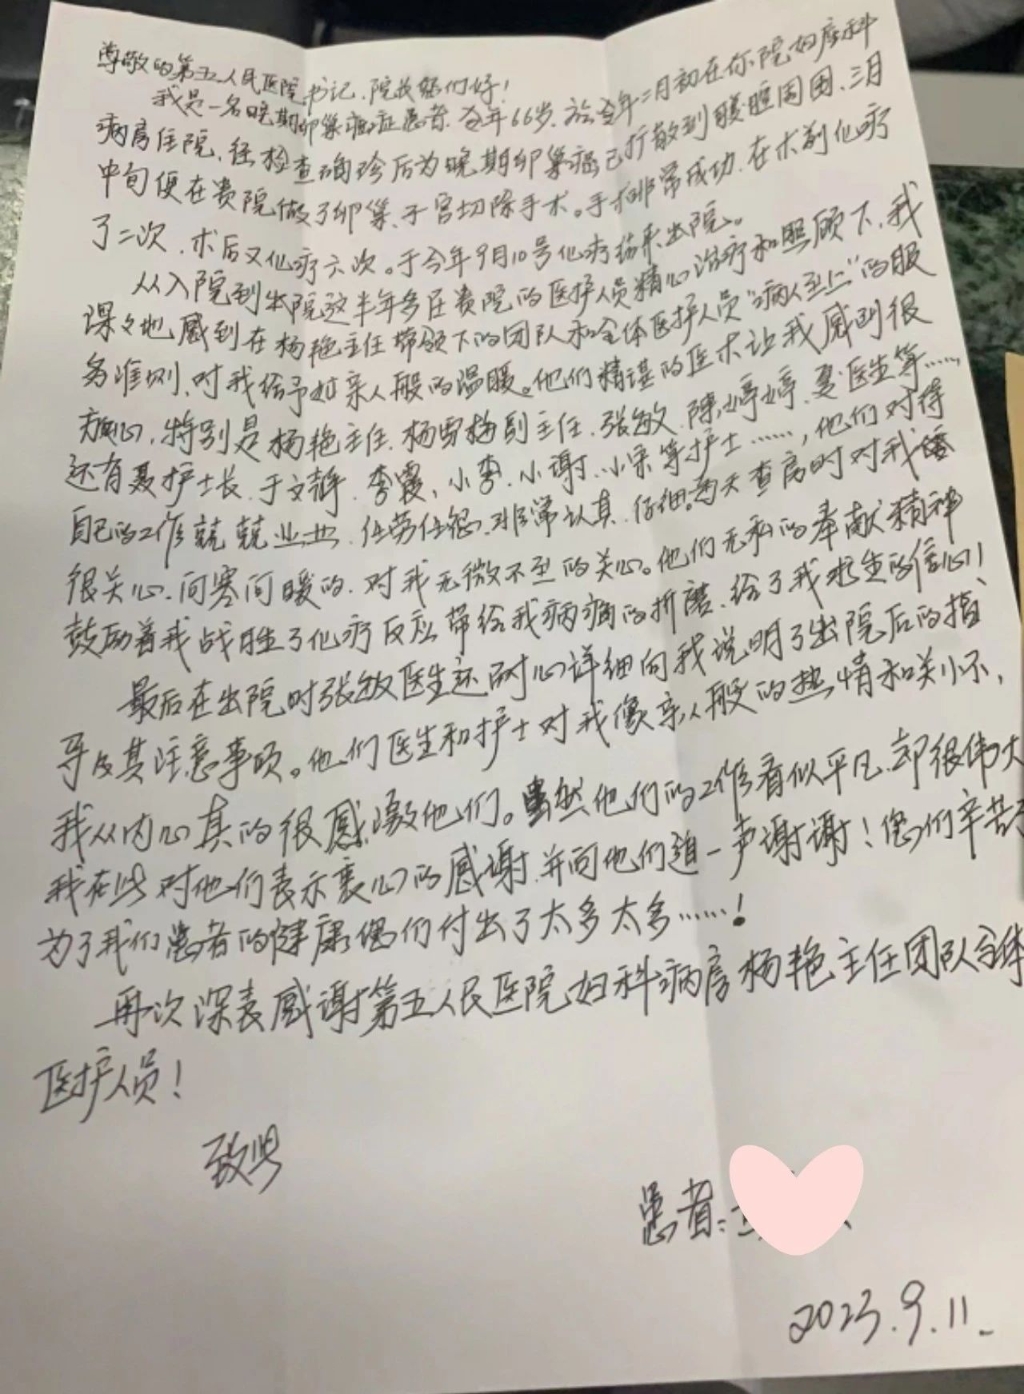 尊敬的第五人民医院书记、院长您们好！
我是一名晚期卵巢癌症患者，今年66岁，于今年二月初在你院妇产科
病房住院，经检查确诊后为晚期卵巢癌已扩散到腹腔周围，三月
中旬便在贵院做了卵巢、子宫切除手术。手术非常成功，在术前化疗
了二次，术后又化疗六次。于今年9月10号化疗结束出院。
从入院到出院这半年多在贵院的医护人员精心治疗和照顾下，我
深々地感到在杨艳主任带领下的团队和全体医护人员“病人至上”的服
务准则，对我给予如亲人般的温暖。他们精湛的医术让我感到很
放心，特别是杨艳主任、杨雪梅副主任、张敏、陈婷婷、姜医生等……，
还有聂护士长、于文静、李霞、小李、小谢、小宋等护士……，他们对待
自己的工作兢兢业业、任劳任怨、非常认真、仔细。每天查房时对我
很关心，问寒问暖的，对我无微不至的关心。他们无私的奉献精神
鼓励着我战胜了化疗反应带给我病痛的折磨，给了我求生的信心！
最后在出院时张敏医生还耐心详细向我说明了出院后的指
导及其注意事项。他们医生和护士对我像亲人般的热情和关心，
我从内心真的很感激他们。虽然他们的工作看似平凡，却很伟大
我在此对他们表示衷心的感谢，并向他们道一声谢谢！您们辛苦了
为了我们患者的健康您们付出了太多太多……！
再次深表感谢第五人民医院妇科病房杨艳主任团队全体
医护人员！
致
患者：
2023.9.11.